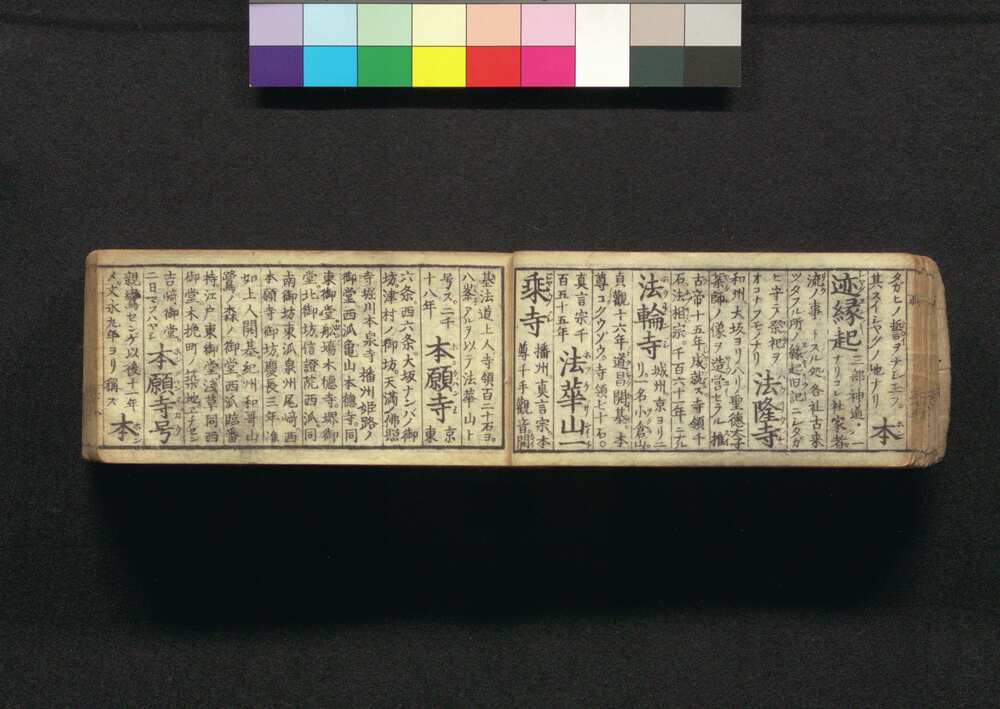 タガヒノ誓ヲナシ玉フ
其スイシヤクノ地ナリ 本
迹縁起 三部神道ノ一
流ノ事 ナリコレ社家者
スル処各社古来
ツタフル所ノ縁起旧記ニシタガ
ヒ守ニ祭祀ヲ
オコナフモノナリ 法隆寺
和州大坂ヨリ八リ聖徳太子
薬師ノ像ヲ造営セラル推
古帝十五年成就ス寺領千
石法相宗千百六十一年ニ九
法輪寺 城州京ヨリ二
リ一名小倉山
貞觀十六年道昌開基本
尊コクウゾウ寺領七十石
真言宗千
百五十五年 法華山一
乘寺 播州真言宗本
尊千手觀音開
基法道上人寺領百二十石ヨ
八峯アルヲ以テ法華山ト
号ス二千
十八年 本願寺 京
東
六条西六条大坂ナンバノ御
坊津村ノ御坊天満ノ佛照
寺堀川本泉寺播州姫路ノ
御堂西派亀山本徳寺同
東御堂船場本徳寺堺御
堂北御坊信證院西派同
南御坊東派泉州尾崎西
本願寺御坊慶長三年准
如上人開基紀州和哥山
鷺ノ森ノ御堂西派臨番
持江戸東御堂淺草同西
御堂木挽町ノ築地エチゼン
吉崎御堂
二日マウヘヤシ 本願寺号
親鸞センゲ以後十一年
メ文永九年ヨリ稱ス 本